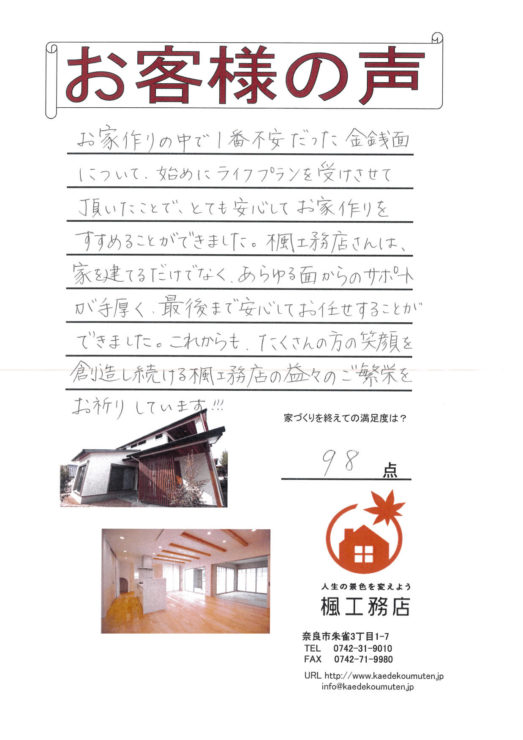 お客様の声
お家作りの中で1番不安だった金銭面
について、始めにライフプランを受けさせて
頂いたことで、とても安心してお家作りを
すすめることができました。楓工務店さんは、
家を建てるだけでなく、あらゆる面からのサポート
が手厚く、最後まで安心してお任せすることが
できました。これからも、たくさんの方の笑顔を
創造し続ける楓工務店の益々のご繁栄を
お祈りしています!!!
家づくりを終えての満足度は？
98 点
人生の景色を変えよう
楓工務店
奈良市朱雀3丁目1-7
TEL 0742-31-9010
FAX 0742-71-9980
URL http://www.kaedekoumuten.jp
info@kaedekoumuten.jp